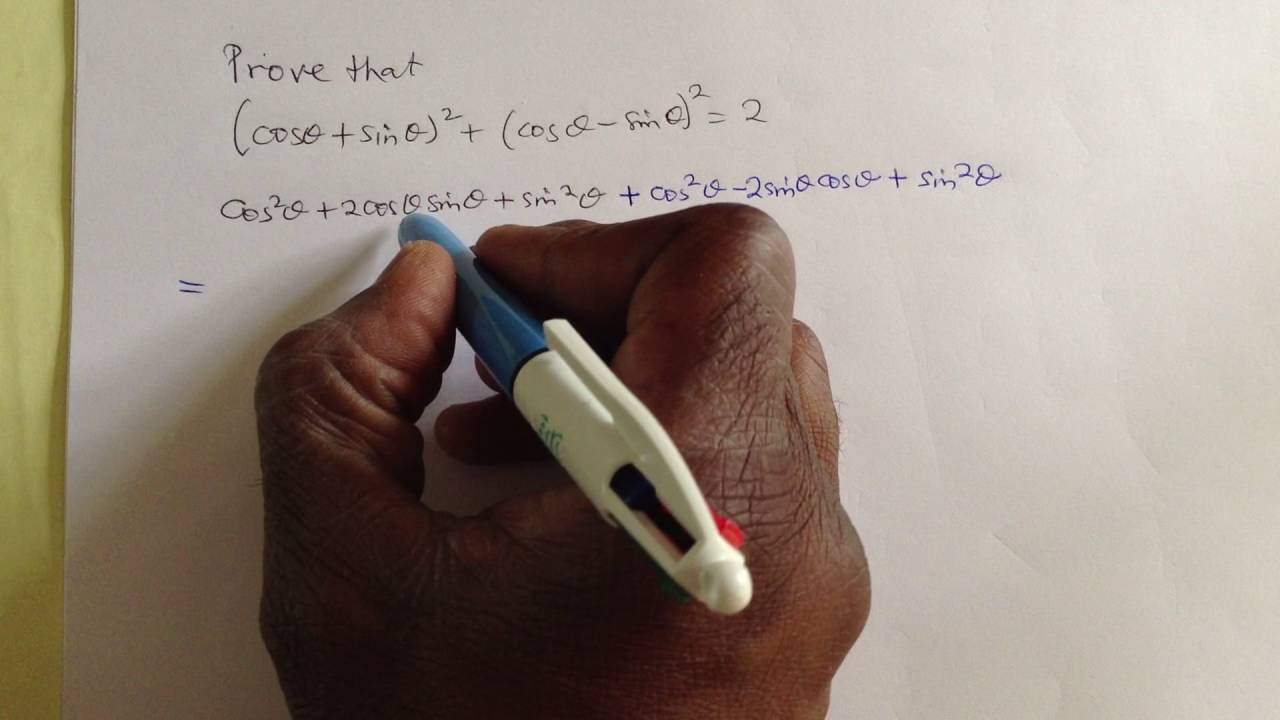 Prove that
(cosθ + sinθ)² + (cosθ - sinθ)² = 2
cos²θ + 2cosθ sinθ + sin²θ + cos²θ - 2sinθ cosθ + sin²θ
=